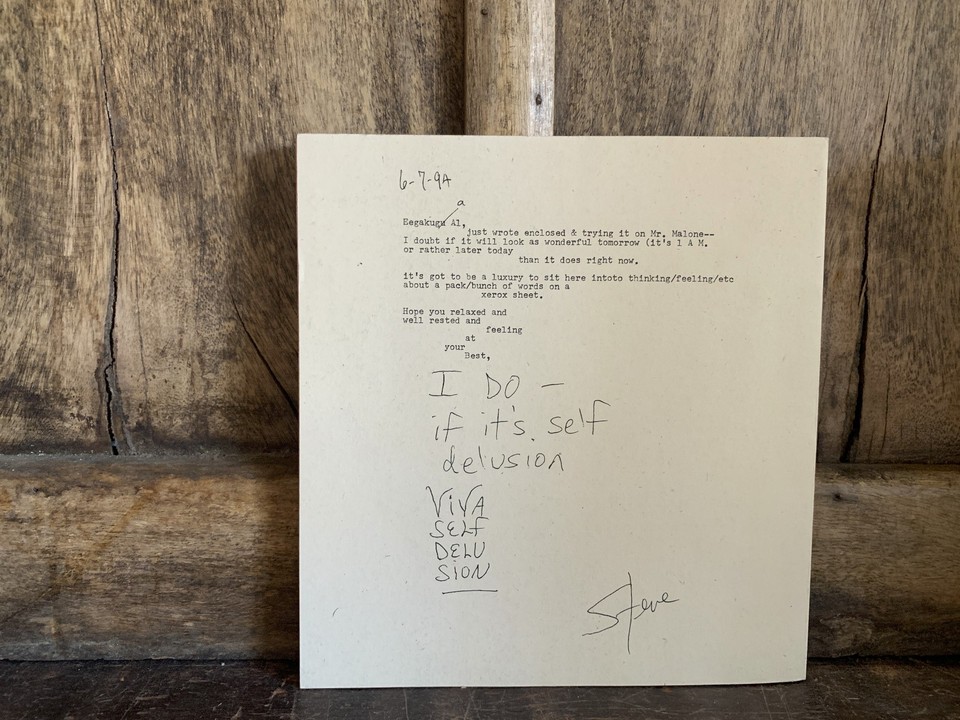 6-7-9A
a
Eegakugu Al,
just wrote enclosed & trying it on Mr. Malone--
I doubt if it will look as wonderful tomorrow (it's 1 A M.
or rather later today
than it does right now.
it's got to be a luxury to sit here intoto thinking/feeling/etc
about a pack/bunch of words on a
xerox sheet.
Hope you relaxed and
well rested and
feeling
at
your
Best,
I DO —
if it's self
delusion
ViVA
SELF
DELU
SiON
Steve